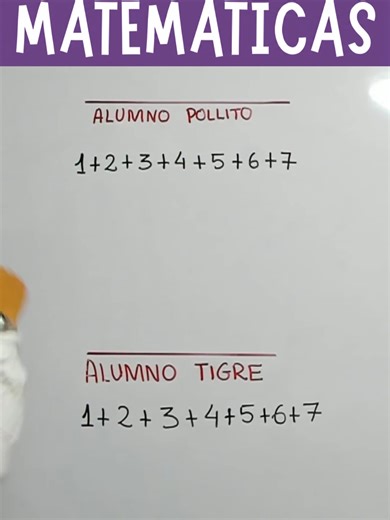 MATEMÁTICAS
ALUMNO POLLITO
1+2+3+4+5+6+7
ALUMNO TIGRE
1+2+3+4+5+6+7